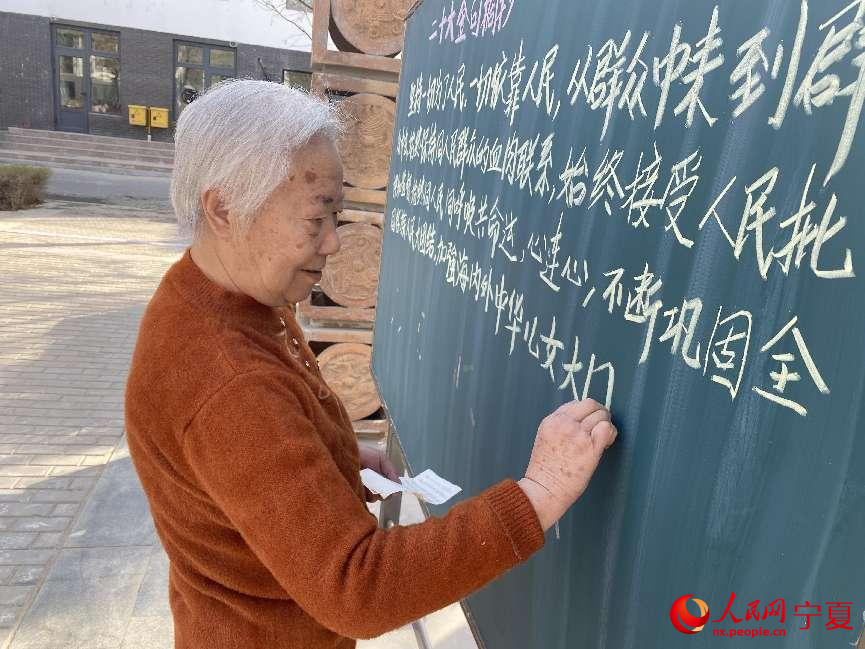 二十大金句摘抄
坚持一切为了人民、一切依靠人民，从群众中来、到群
保持同人民群众的血肉联系，始终接受人民批
同人民同呼吸共命运、心连心，不断巩固全
大团结，加强海内外中华儿女大
人民网 宁夏
nx.people.cn